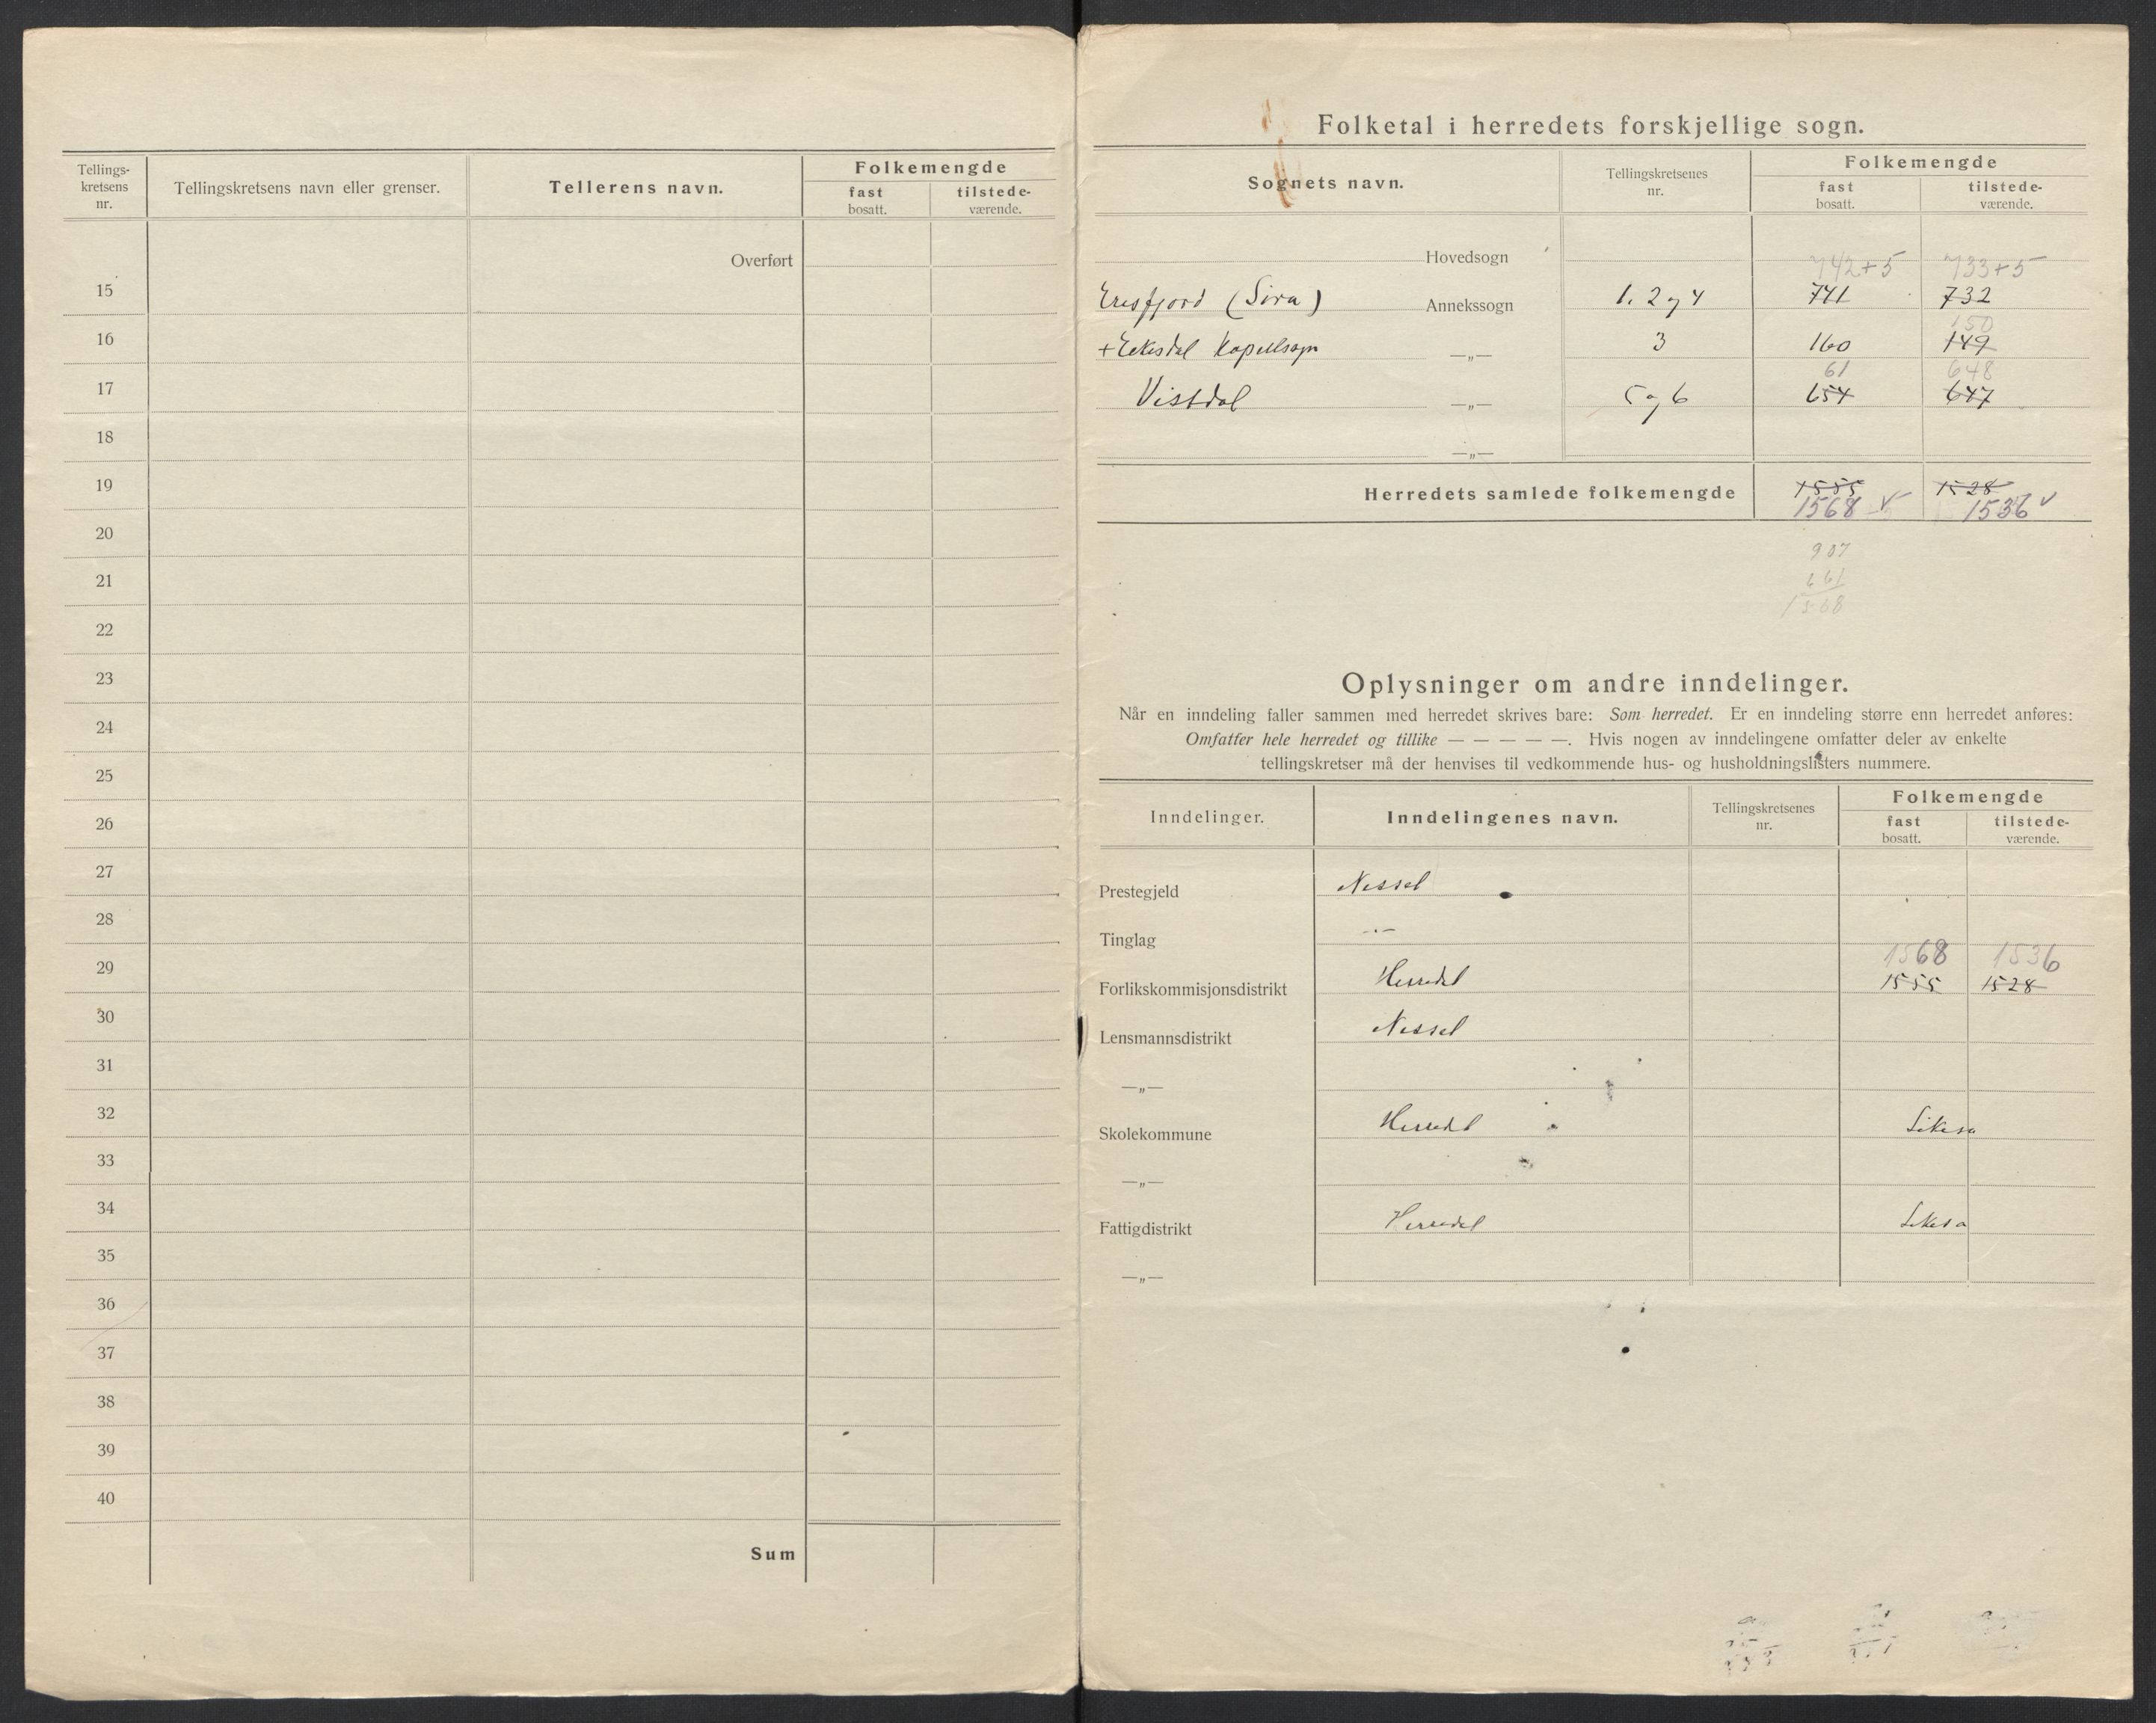 Tellings-
kretsens
nr.
Tellingskretsens navn eller grenser.
Tellerens navn.
Folkemengde
fast
bosatt.
tilstede-
værende.
Overført
15
16
17
18
19
20
21
22
23
24
25
26
27
28
29
30
31
32
33
34
35
36
37
38
39
40
Sum
Folketal i herredets forskjellige sogn.
Sognets navn.
Tellingskretsenes
nr.
Folkemengde
fast
bosatt.
tilstede-
værende.
Hovedsogn
742+5 733+5
Eresfjord (Sira) Annekssogn 1, 2 og 4 741 732
150
+ Eekisdal Kapellsogn —„— 3 160 149
61 648
Vistdal —„— 5 og 6 654 647
—„—
Herredets samlede folkemengde 1555 1528
1568 v 1536 v
907
661
1568
Oplysninger om andre inndelinger.
Når en inndeling faller sammen med herredet skrives bare: Som herredet. Er en inndeling større enn herredet anføres:
Omfatter hele herredet og tillike — — — — —. Hvis nogen av inndelingene omfatter deler av enkelte
tellingskretser må der henvises til vedkommende hus- og husholdningslisters nummere.
Inndelinger.
Inndelingenes navn.
Tellingskretsenes
nr.
Folkemengde
fast
bosatt.
tilstede-
værende.
Prestegjeld Nesset
Tinglag -"-
1568 1536
Forlikskommisjonsdistrikt Herredet 1555 1528
Lensmannsdistrikt Nesset
—„—
Skolekommune Herredet Likesa
—„—
Fattigdistrikt Herredet Likesa
—„—